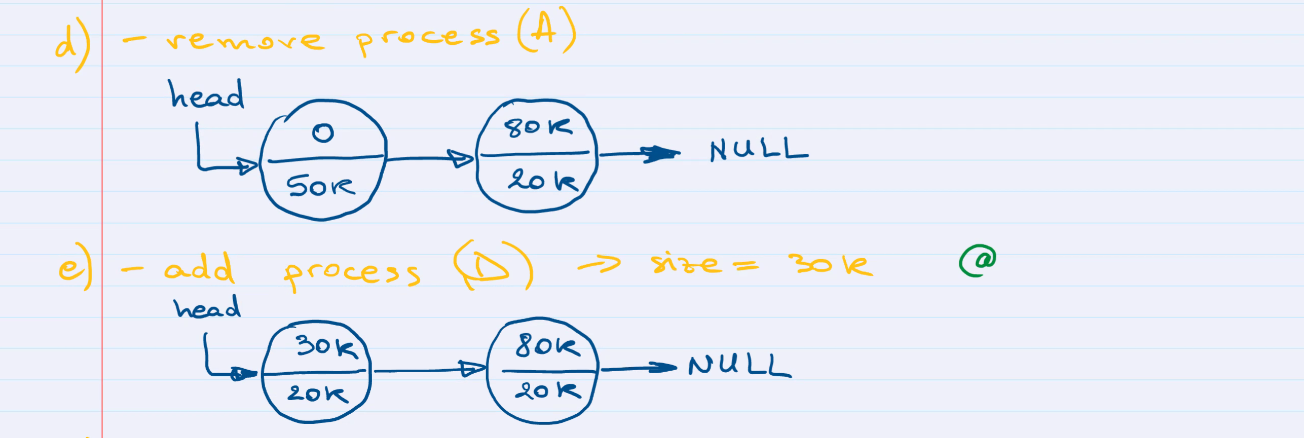 d) - remove process (A)
head
0 80K
50K 20K
NULL
e) - add process (D) → size = 30K @
head
30K 80K
20K 20K
NULL